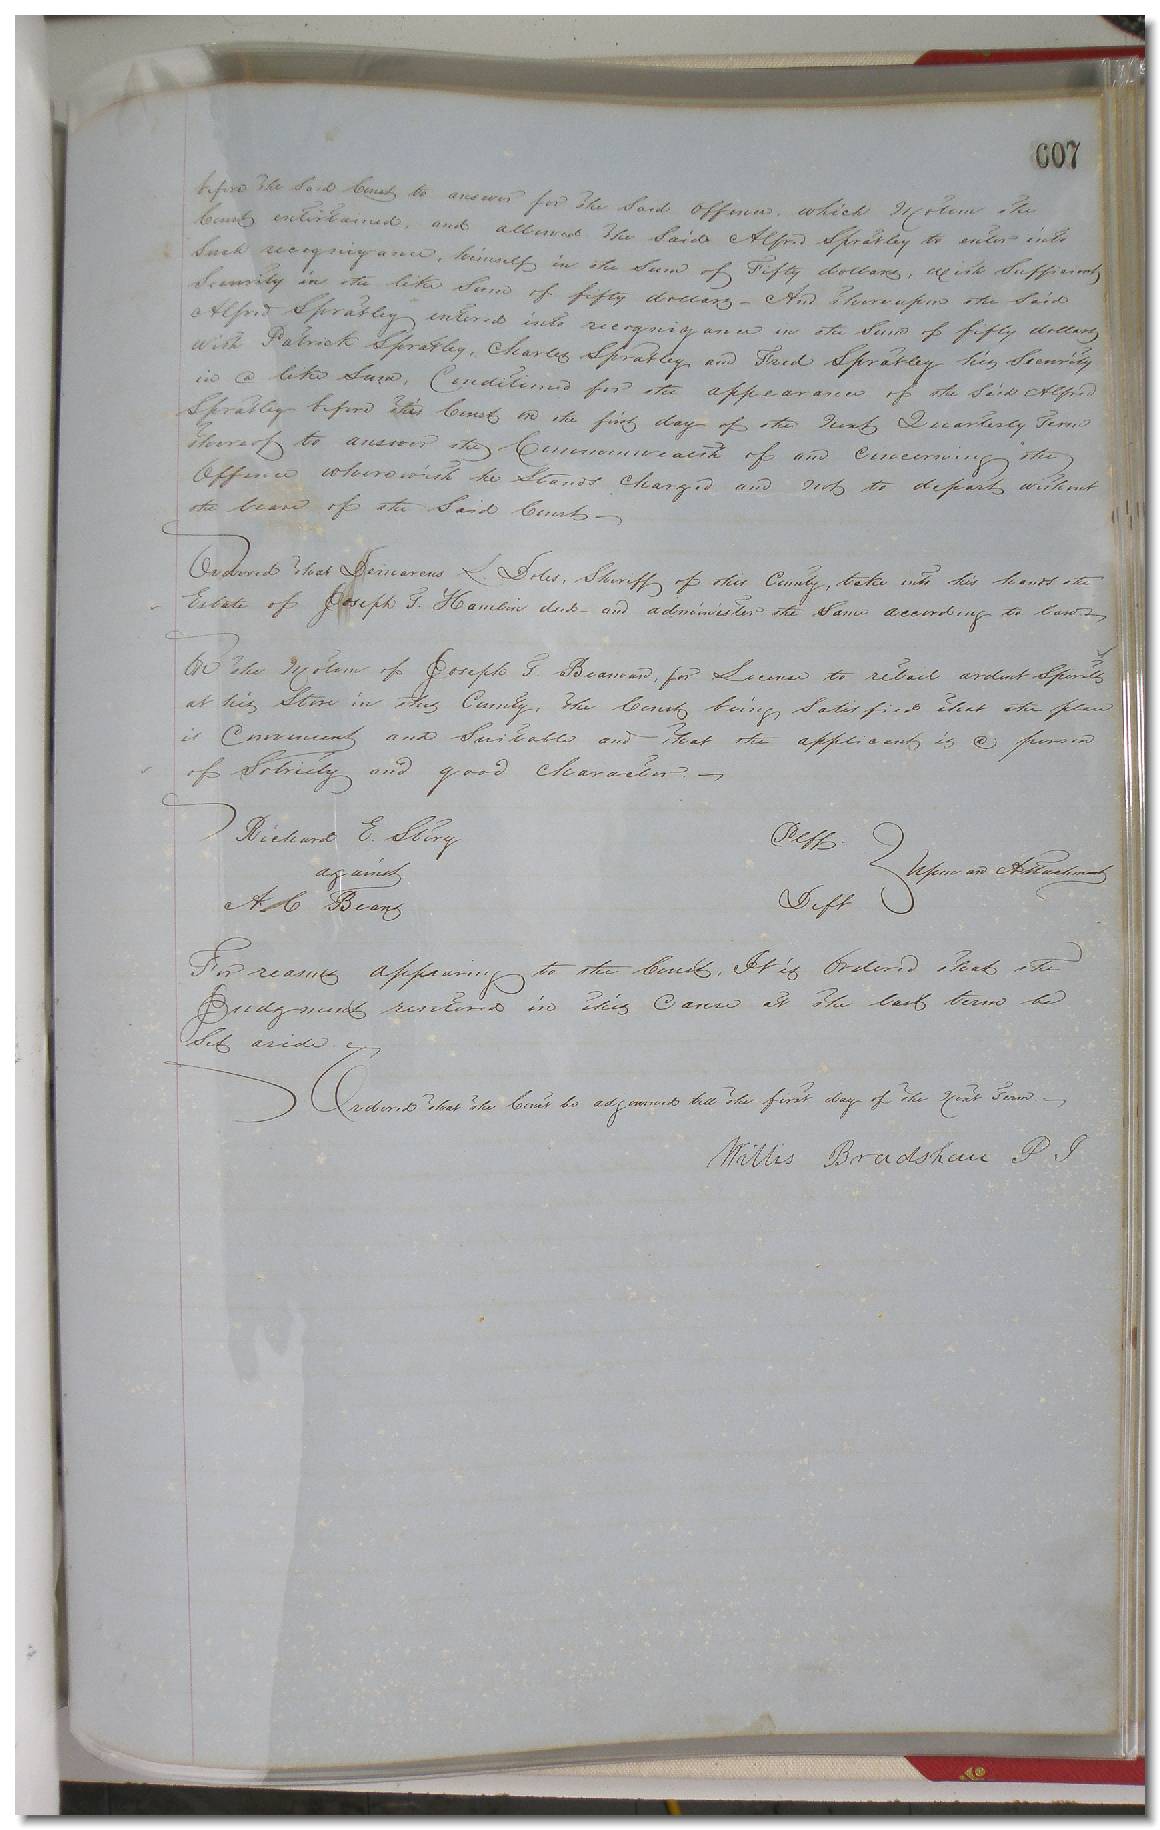 607
before the said Court to answer for the said offence. which motion the
Court entertained, and allowed the said Alfred Spratley to enter into
Such recognizance, himself in the sum of Fifty dollars, with Sufficient
Security in the like Sum of fifty dollars – And thereupon the said
Alfred Spratley entered into recognizance in the Sum of fifty dollars
with Patrick Spratley, Charles Spratley and Fred Spratley his Security
in a like Sum, Conditioned for the appearance of the Said Alfred
Spratley before this Court on the first day of the Next Quarterly Term
thereof to answer the Commonwealth of and concerning the
Offence wherewith he Stands charged and not to depart without
the leave of the Said Court –
Ordered that L. Doles, Sheriff of this County, take into his hands the
Estate of Joseph T. Hamlin decd and administer the Same according to law –
On the Motion of Joseph T. for License to retail ardent Spirits
at his Store in this County, the Court being Satisfied that the place
is Convenient and Suitable and that the applicant is a person
of Sobriety and good character. –
Richard E. Story Plff.
against Upon an Attachment
A. C Beans Deft
For reasons appearing to the Court, It is Ordered that the
Judgment rendered in this Cause at the last term be
Set aside. –
Ordered that the Court be adjourned till the first day of the Next Term –
Willis Bradshaw P J